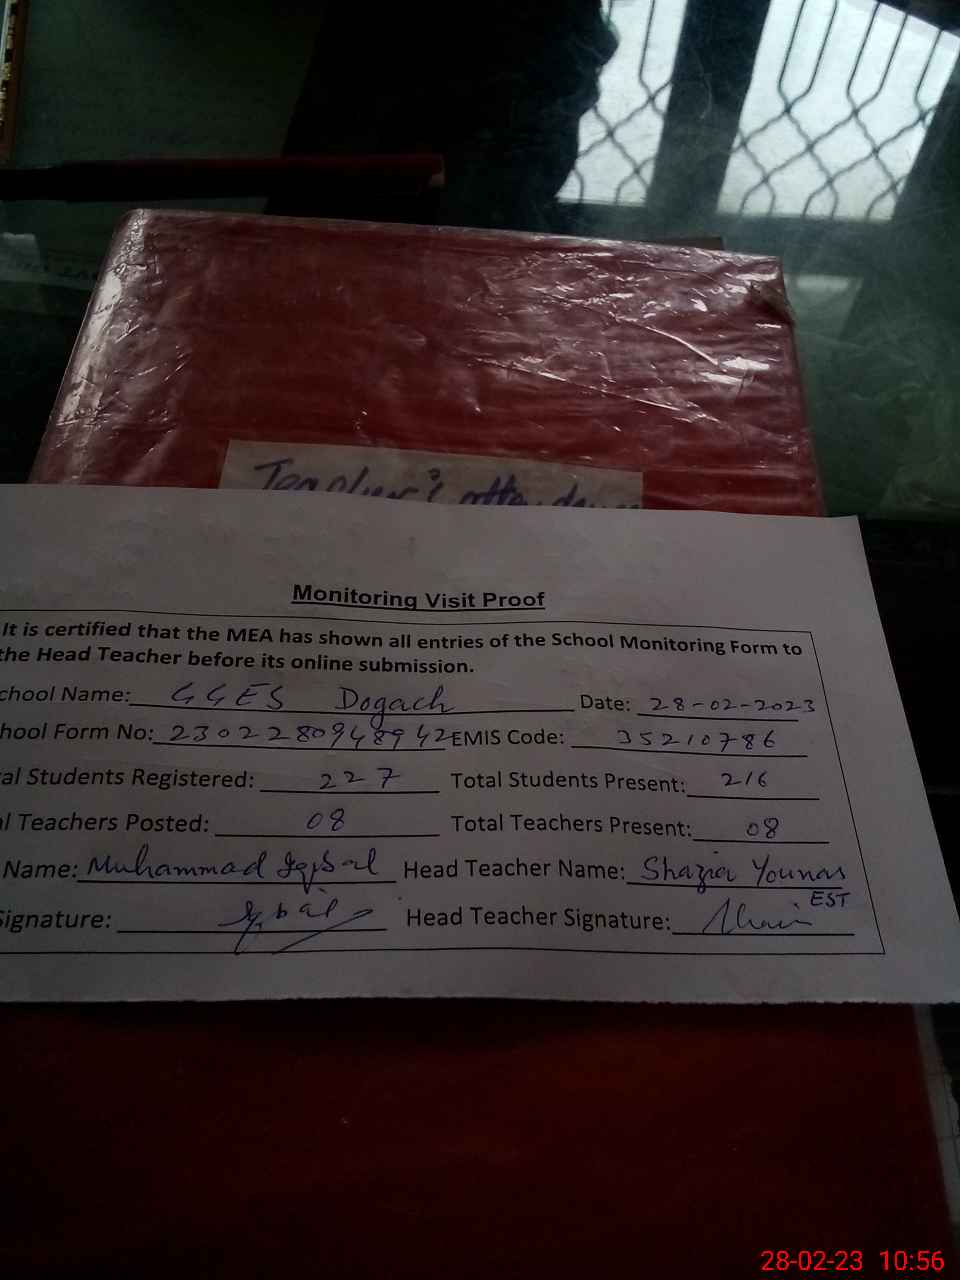 Teacher's attendance
Monitoring Visit Proof
It is certified that the MEA has shown all entries of the School Monitoring Form to
the Head Teacher before its online submission.
chool Name: GGES Dogach Date: 28-02-2023
hool Form No: 2302280948942 EMIS Code: 35210786
al Students Registered: 227 Total Students Present: 216
l Teachers Posted: 08 Total Teachers Present: 08
Name: Muhammad Iqbal Head Teacher Name: Shazia Younas
EST
Signature: Iqbal Head Teacher Signature:
28-02-23 10:56